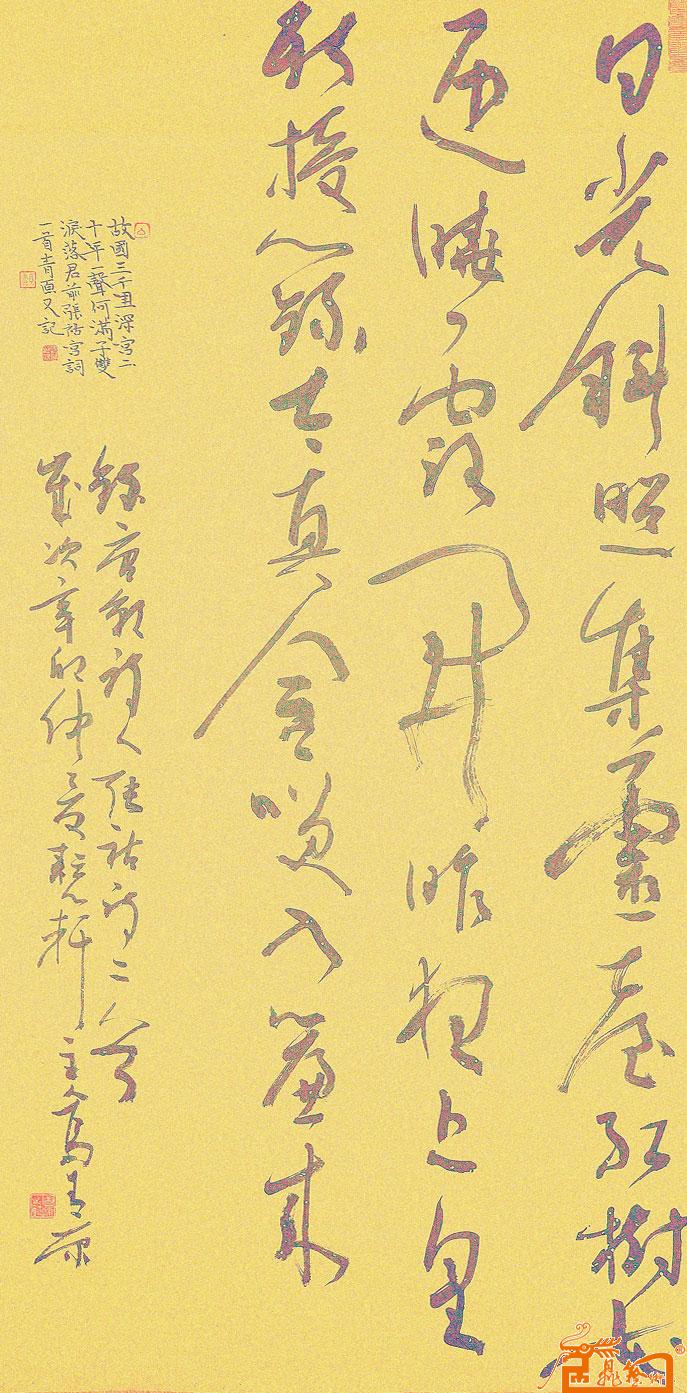 日光斜照集靈臺紅樹花
迎曉露開昨夜上皇
新授籙太真含笑入簾來
錄唐朝詩人張祜詩二首
歲次辛卯仲夏軒主高青原
故國三千里深宮二
十年一聲何滿子雙
淚落君前張祜宮詞
一首青原又記